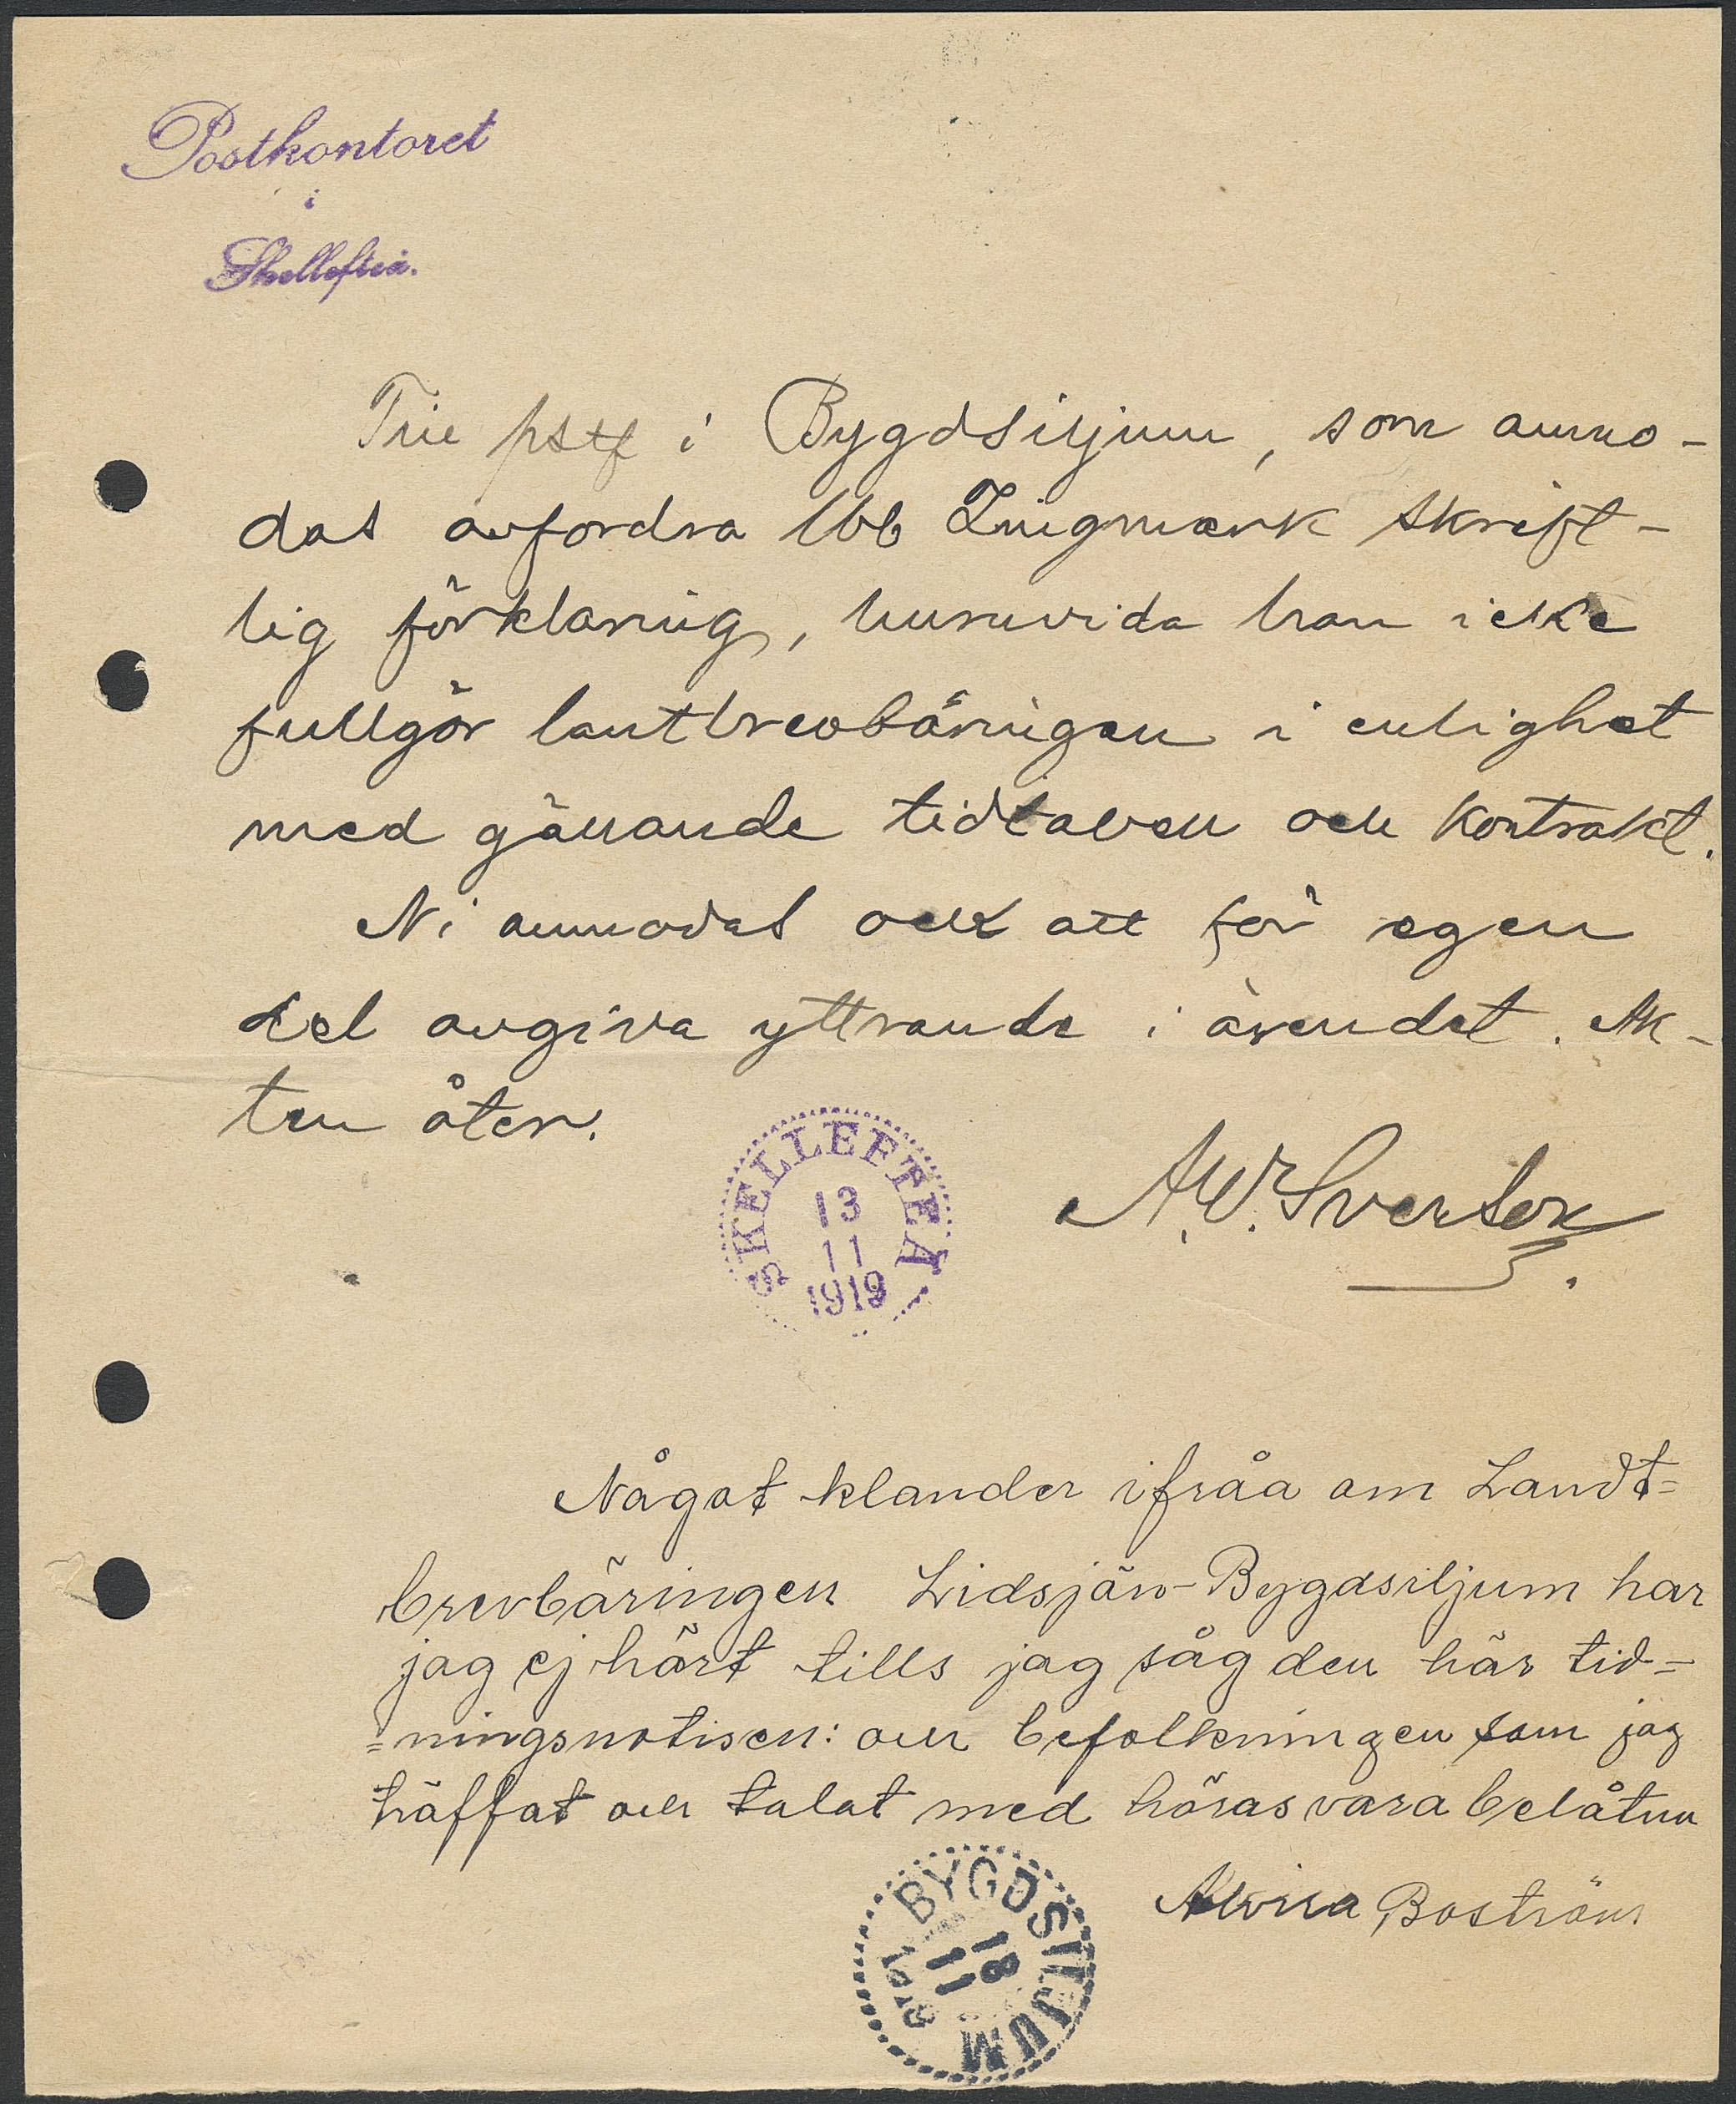 Postkontoret
i
Skellefteå.
Till pstf i Bygdsiljum, som anmo-
das avfordra lbb Lingmark skrift-
lig förklaring, huruvida han icke
fullgör lantbrevbäringen i enlighet
med gällande tidtabell och kontrakt.
Ni anmodas ock att för egen
del avgiva yttrande i ärendet. Ak-
ten åter.
SKELLEFTEÅ
13
11
1919
A.W. Sverson
Något klander ifråa om Landt=
brevbäringen Lidsjön-Bygdsiljum har
jag ej hört tills jag såg den här tid=
=ningsnotisen: och befolkningen som jag
träffat och talat med höras vara belåtna
Alvina Boström
BYGDSILJUM
18
11
1919